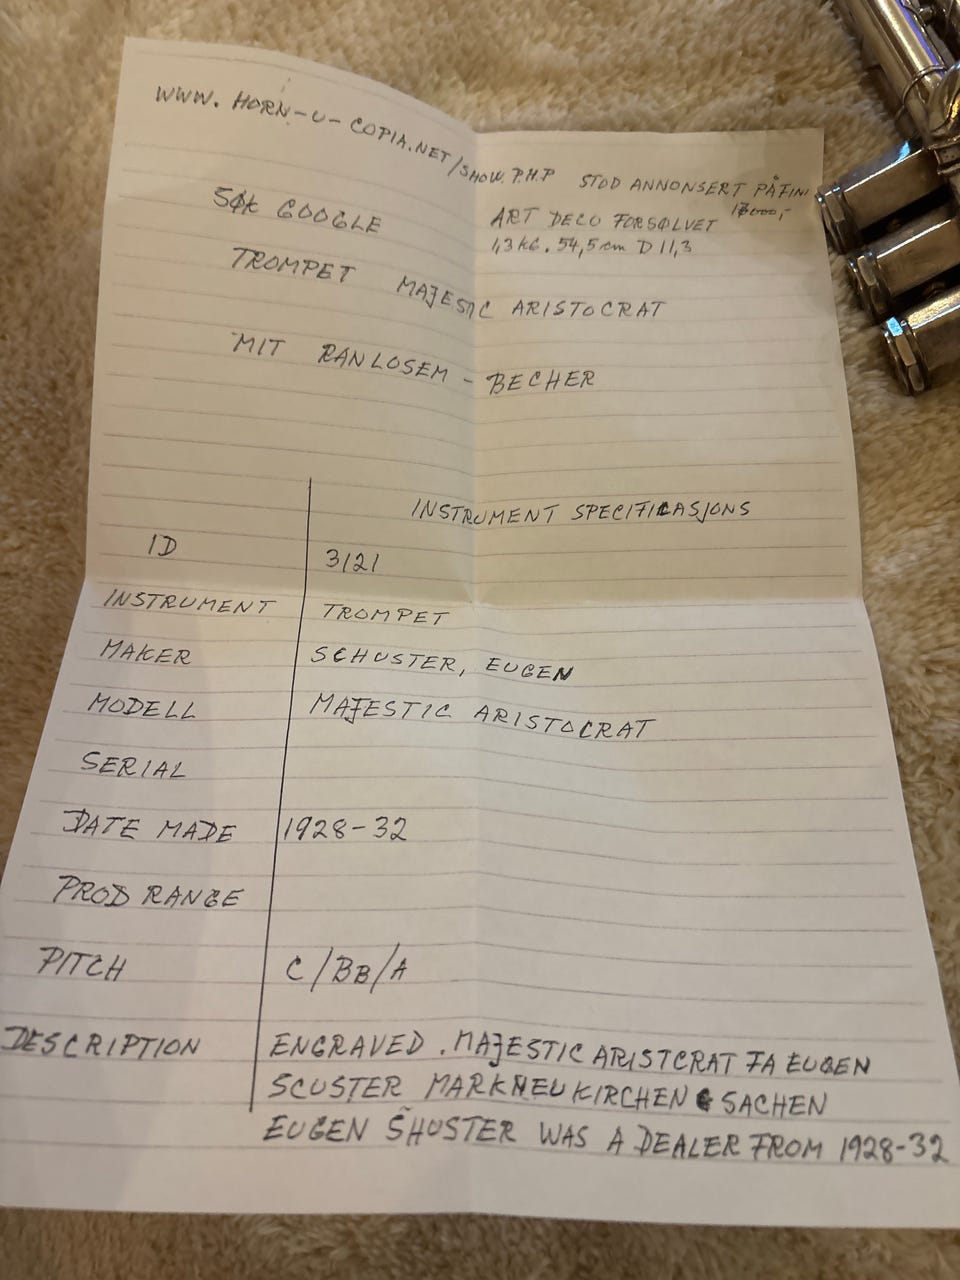 WWW. HORN-U-COPIA.NET/SHOW. P.H.P
STOD ANNONSERT PÅ FINN
13000,-
SØK GOOGLE
ART DECO FORSØLVET
1,3 KG. 54,5 cm D 11,3
TROMPET MAJESTIC ARISTOCRAT
MIT RANLOSEM - BECHER
INSTRUMENT SPECIFICASJONS
ID 3121
INSTRUMENT TROMPET
MAKER SCHUSTER, EUGEN
MODELL MAJESTIC ARISTOCRAT
SERIAL
DATE MADE 1928-32
PROD RANGE
PITCH C/BB/A
DESCRIPTION ENGRAVED . MAJESTIC ARISTCRAT FA EUGEN
SCUSTER MARKNEUKIRCHEN SACHEN
EUGEN SHUSTER WAS A DEALER FROM 1928-32